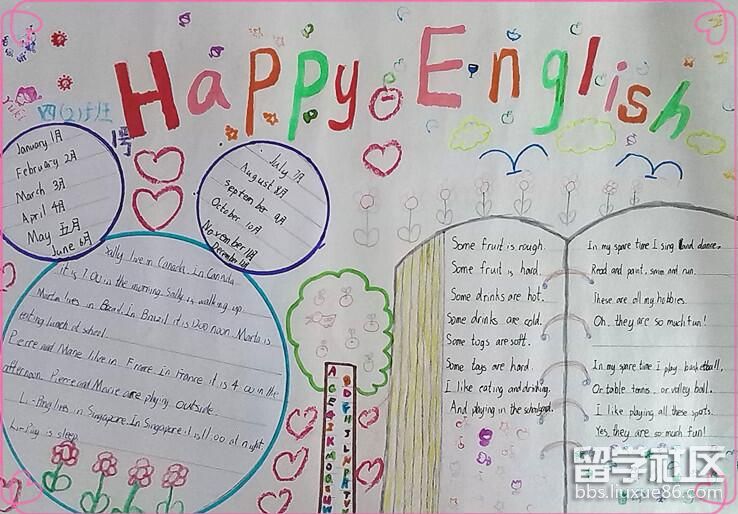 Happy English
四(2)班
January 1月
February 2月
March 3月
April 4月
May 五月
June 6月
July 7月
August 8月
september 9月
October 10月
November 11月
December 12月
Sally live in Canada. In Canada
it is 7:00 in the morning. Sally is walking up.
Marta lives in Brazil. In Brazil it is 1200 noon. Marta is
eating lunch at school.
Pierre and Marie live in France. In France it is 4:00 in the
afternoon. Pierre and Marie are playing outside.
Li-Ping lives in Singapore. In Singapore it is 11:00 at night.
Li-Ping is sleep.
Some fruit is rough.
Some fruit is hard.
Some drinks are hot.
Some drinks are cold.
Some togs are soft.
Some togs are hard.
I like eating and drinking.
And playing in the schoolyard.
In my spare time I sing and dance.
Read and paint, swim and run.
These are all my hobbies.
Oh, they are so much fun!
In my spare time I play basketball,
Or table tennis, or valley ball.
I like playing all these spots.
Yes, they are so much fun!
留学社区
bbs.liuxue86.com